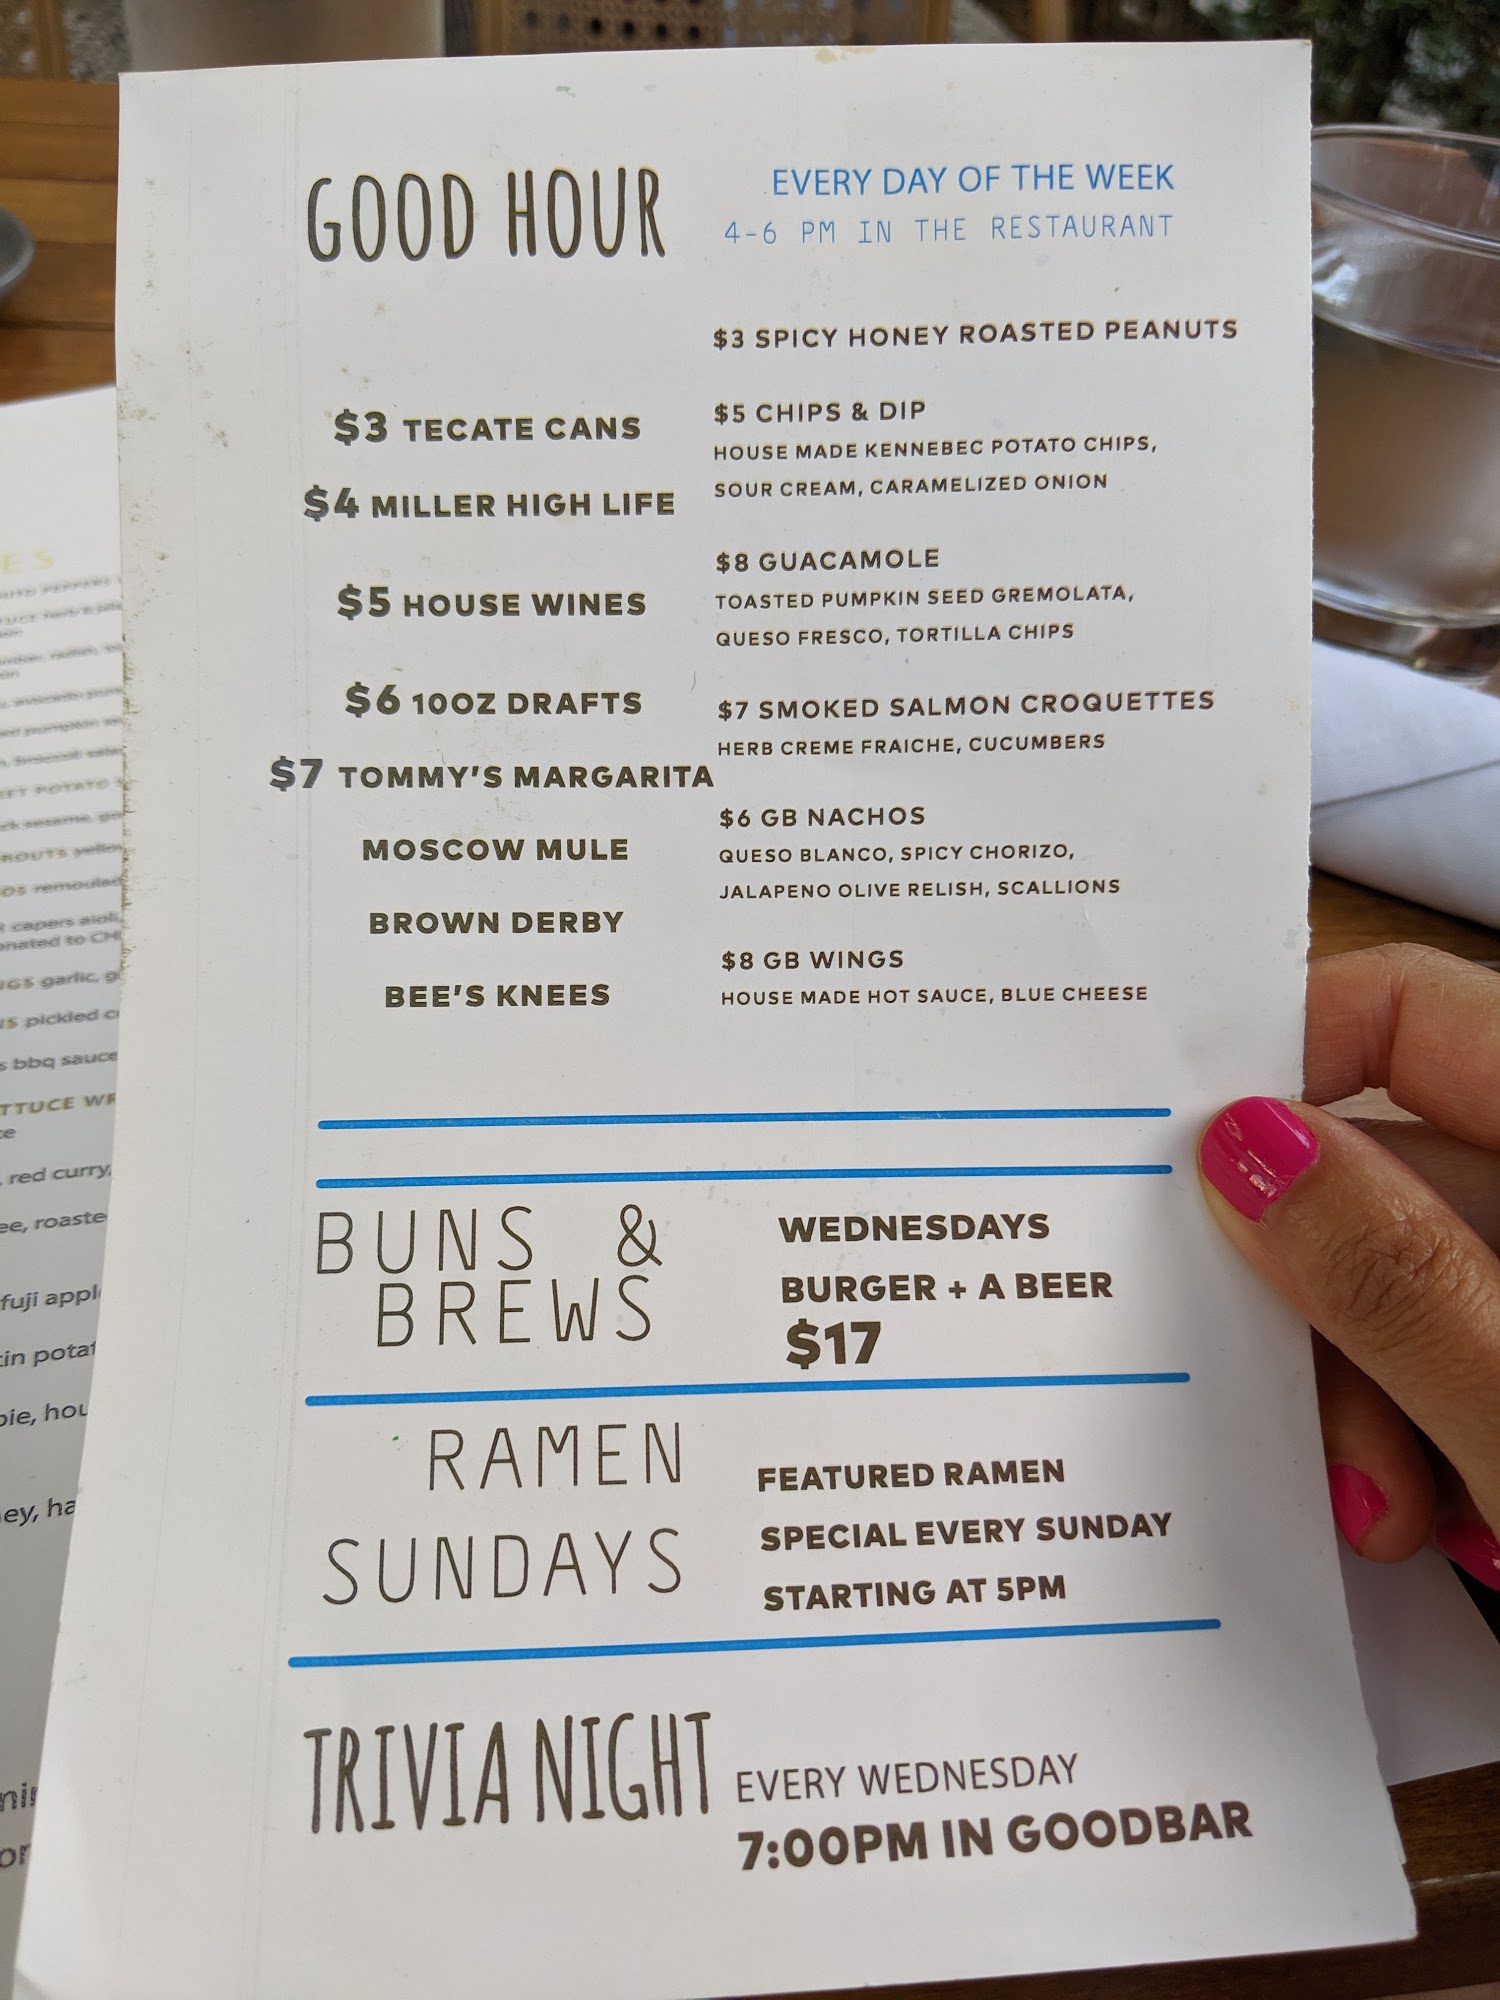 GOOD HOUR
EVERY DAY OF THE WEEK
4-6 PM IN THE RESTAURANT
$3 TECATE CANS
$4 MILLER HIGH LIFE
$5 HOUSE WINES
$6 10OZ DRAFTS
$7 TOMMY'S MARGARITA
MOSCOW MULE
BROWN DERBY
BEE'S KNEES
$3 SPICY HONEY ROASTED PEANUTS
$5 CHIPS & DIP
HOUSE MADE KENNEBEC POTATO CHIPS,
SOUR CREAM, CARAMELIZED ONION
$8 GUACAMOLE
TOASTED PUMPKIN SEED GREMOLATA,
QUESO FRESCO, TORTILLA CHIPS
$7 SMOKED SALMON CROQUETTES
HERB CREME FRAICHE, CUCUMBERS
$6 GB NACHOS
QUESO BLANCO, SPICY CHORIZO,
JALAPENO OLIVE RELISH, SCALLIONS
$8 GB WINGS
HOUSE MADE HOT SAUCE, BLUE CHEESE
BUNS &
BREWS
WEDNESDAYS
BURGER + A BEER
$17
RAMEN
SUNDAYS
FEATURED RAMEN
SPECIAL EVERY SUNDAY
STARTING AT 5PM
TRIVIA NIGHT
EVERY WEDNESDAY
7:00PM IN GOODBAR
capers aioli,
garlic,
pickled
bbq sauce
red curry,
fuji